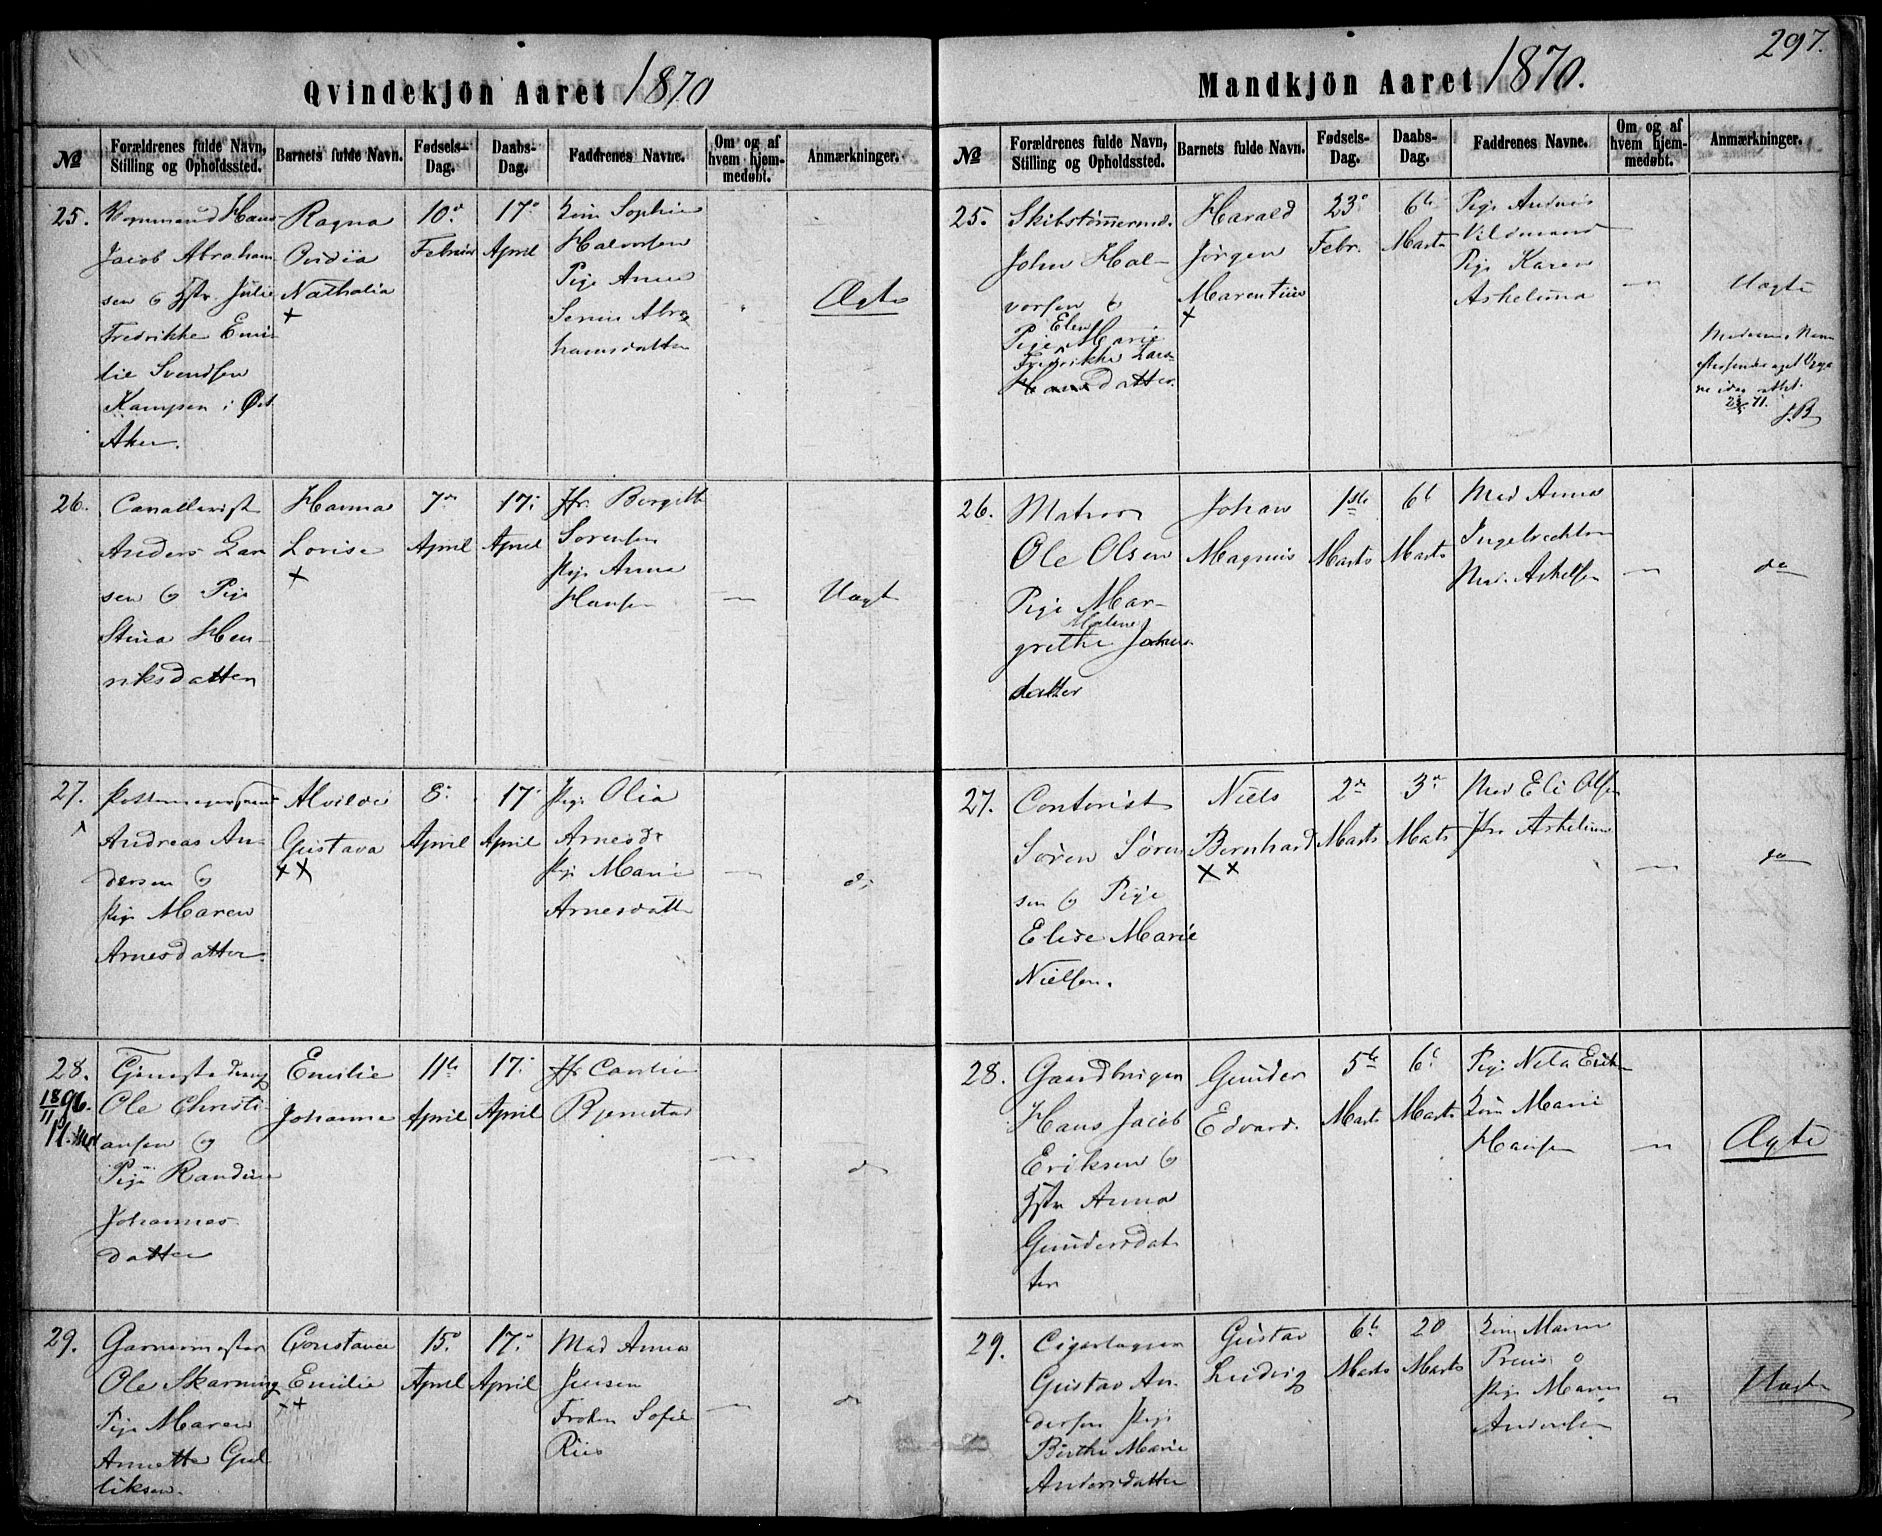 297.
Qvindekjön Aaret 1870
№
Forældrenes fulde Navn, Stilling og Opholdssted.
Barnets fulde Navn.
Fødsels-Dag.
Daabs-Dag.
Faddrenes Navne.
Om og af hvem hjem-medøbt.
Anmærkninger.
25.
Hans
Jacob Abraham
sen og Hstr Julie
Fredrikke Emi
lie Svendsen
Kampen i Øst
Aker.
Ragna
Ovidia
Nathalia
×
10de
Februar
17de
April
Sophie
Halvorsen
Pige Anne
Serine Abra
hamsdatter
Ægte
26.
Cavallerist
Anders Lar
sen og Pige
Stina Hen-
riksdatter
Hanna
Lovise
×
7de
April
17.
April
Fr. Bergette
Sørensen
Pige Anna
Hansen
—
Uægte
27.
Andreas An-
dersen og
Pige Maren
Arnesdatter.
Alvilde
Gustava
××
8.
April
17.
April
Pige Olia
Arnesdr
Pige Marie
Arnesdatter
—
do
28.
18/11 96.
Ole Christi
ansen og
Pige Randine
Johannes
datter
Emilie
Johanna
11te
April
17.
April
Fr
—
do
29.
Garvermester
Ole Skarning
Pige Maren
Annette Gul
liksen.
Constance
Emilie
××
15de
April
17de
April
Mad Anna
Jensen
Frøken Sofie
Riis
—
do
Mandkjön Aaret 1870.
№
Forældrenes fulde Navn, Stilling og Opholdssted.
Barnets fulde Navn.
Fødsels-Dag.
Daabs-Dag.
Faddrenes Navne.
Om og af hvem hjem-medøbt.
Anmærkninger.
25.
Skibstømmermd.
John Hal-
vorsen og
Pige Elen Marie
Fredrikke Lars
Hansdatter.
Harald
Jørgen
Marentius
×
23de
Febr.
6te
Marts
Pige
Vildmand
Pige Karen
Askelima
—
Uægte
Moderens Navn
71.
J.B
26.
Matros
Ole Olsen
Pige Mar-
grethe Malene Johans
datter
Johan
Magnus
1ste
Marts
6te
Marts
Mad Anna
Ingebrechtsen
Mad. Askelsen
—
do
27.
Contorist
Søren Søren
sen og Pige
Elise Marie
Nielsen.
Niels
Bernhard
××
2den
Marts
3die
Mats
Mad Eli Olsen
—
do
28.
Gaardbruger
Hans Jacob
Eriksen og
Hstr Anna
Gundersdat
ter
Gunder
Edvard.
5te
Marts
6te
Marts
Pige Erik
Marie
Hansen
—
Ægte
29.
Gustav An
dersen Pige
Birthe Marie
Andersdatter
Gustav
Ludvig
6te
Marts
20
Marts
Preus
Pige Maren
Andersen
Uægte